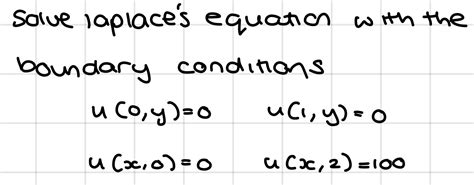 Solve laplace's equation with the
boundary conditions
u(0,y)=0 u(1,y)=0
u(x,0)=0 u(x,2)=100